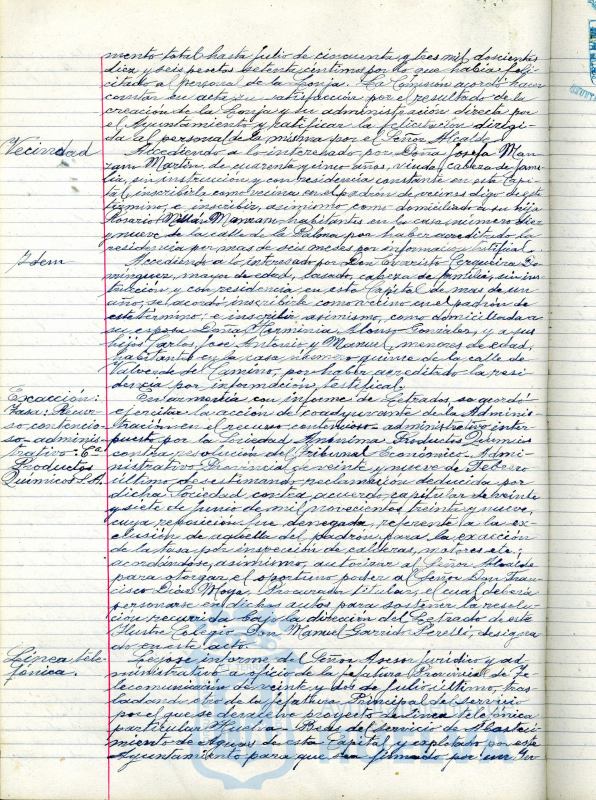 mento total hasta Julio de cincuenta y tres mil doscientas
diez y seis pesetas setenta céntimos por lo que había feli-
citado al personal de la Lonja. La Comisión acordó hacer
constar en acta su satisfacción por el resultado de la
creación de la Lonja y su administración directa por
el Ayuntamiento y ratificar la felicitación dirigi-
da al personal de la misma por el Señor Alcalde.
Vecindad
Accediendo a lo interesado por Doña Josefa Man-
zan Martín, de cuarenta y cinco años, viuda, cabeza de fami-
lia, sin instrucción y con residencia constante en esta Capi-
tal, inscribirle como vecina en el padrón de vecinos digo de este
término, e inscribir, asimismo como domiciliada a su hija
Rosario Manzan, habitantes en la casa número diez
y nueve de la calle de la Paloma por haber acreditado la
residencia por mas de seis meses por información testifical.
Idem
Accediendo a lo interesado por Don Evaristo Cerqueira Do-
mínguez, mayor de edad, casado, cabeza de familia, sin ins-
trucción y con residencia en esta Capital de mas de un
año, se acordó inscribirle como vecino en el padrón de
este término; e inscribir asimismo, como domiciliada a
su esposa Doña Herminia Alonso González, y a sus
hijos Carlos, José Antonio y Manuel, menores de edad,
habitantes en la casa número quince de la calle de
Valverde del Camino, por haber acreditado la resi-
dencia por información testifical.
Exacción:
Tasa: Recur-
so contencio-
so-adminis-
trativo: Cª
Productos
Químicos S.A.
De conformidad con informe de Letrados, se acordó
ejercitar la acción de coadyuvante de la Adminis-
tración en el recurso contencioso-administrativo inter-
puesto por la Sociedad Anónima Productos Químicos
contra resolución del Tribunal Económico-Admi-
nistrativo Provincial de veinte y nueve de Febrero
último desestimando reclamación deducida por
dicha Sociedad contra acuerdo capitular de veinte
y siete de Junio de mil novecientos treinta y nueve,
cuya reposición fue denegada, referente a la ex-
clusión de aquella del padrón para la exacción
de la tasa por inspección de calderas, motores etc.;
acordándose, asimismo, autorizar al Señor Alcalde
para otorgar el oportuno poder al Señor Don Fran-
cisco Díaz Moya, Procurador titular, el cual deberá
personarse en dichos autos para sostener la resolu-
ción recurrida bajo la dirección del Letrado de este
Ilustre Colegio Don Manuel Garrido Perelló, designa-
do en este acto.
Línea tele-
fónica.
Leyóse informe del Señor Asesor Jurídico y ad-
ministrativo a oficio de la Jefatura Provincial de Te-
lecomunicación de veinte y dos de Julio último, tras-
ladando el de la Jefatura Principal del servicio
por el que se devuelve proyecto de línea telefónica
particular Red del Servicio de Abasteci-
miento de Aguas de esta Capital y explotado por este
Ayuntamiento para que sea firmado por un In-